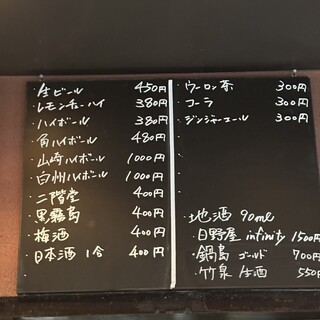 ・生ビール 450円
・レモンチューハイ 380円
・ハイボール 380円
・角ハイボール 480円
・山崎ハイボール 1000円
・白州ハイボール 1000円
・二階堂 400円
・黒霧島 400円
・梅酒 400円
・日本酒 1合 400円
・ウーロン茶 300円
・コーラ 300円
・ジンジャーエール 300円
・地酒 90ml
・日野屋 infinity 1500円
・鍋島 ゴールド 700円
・竹泉 生酒 550円